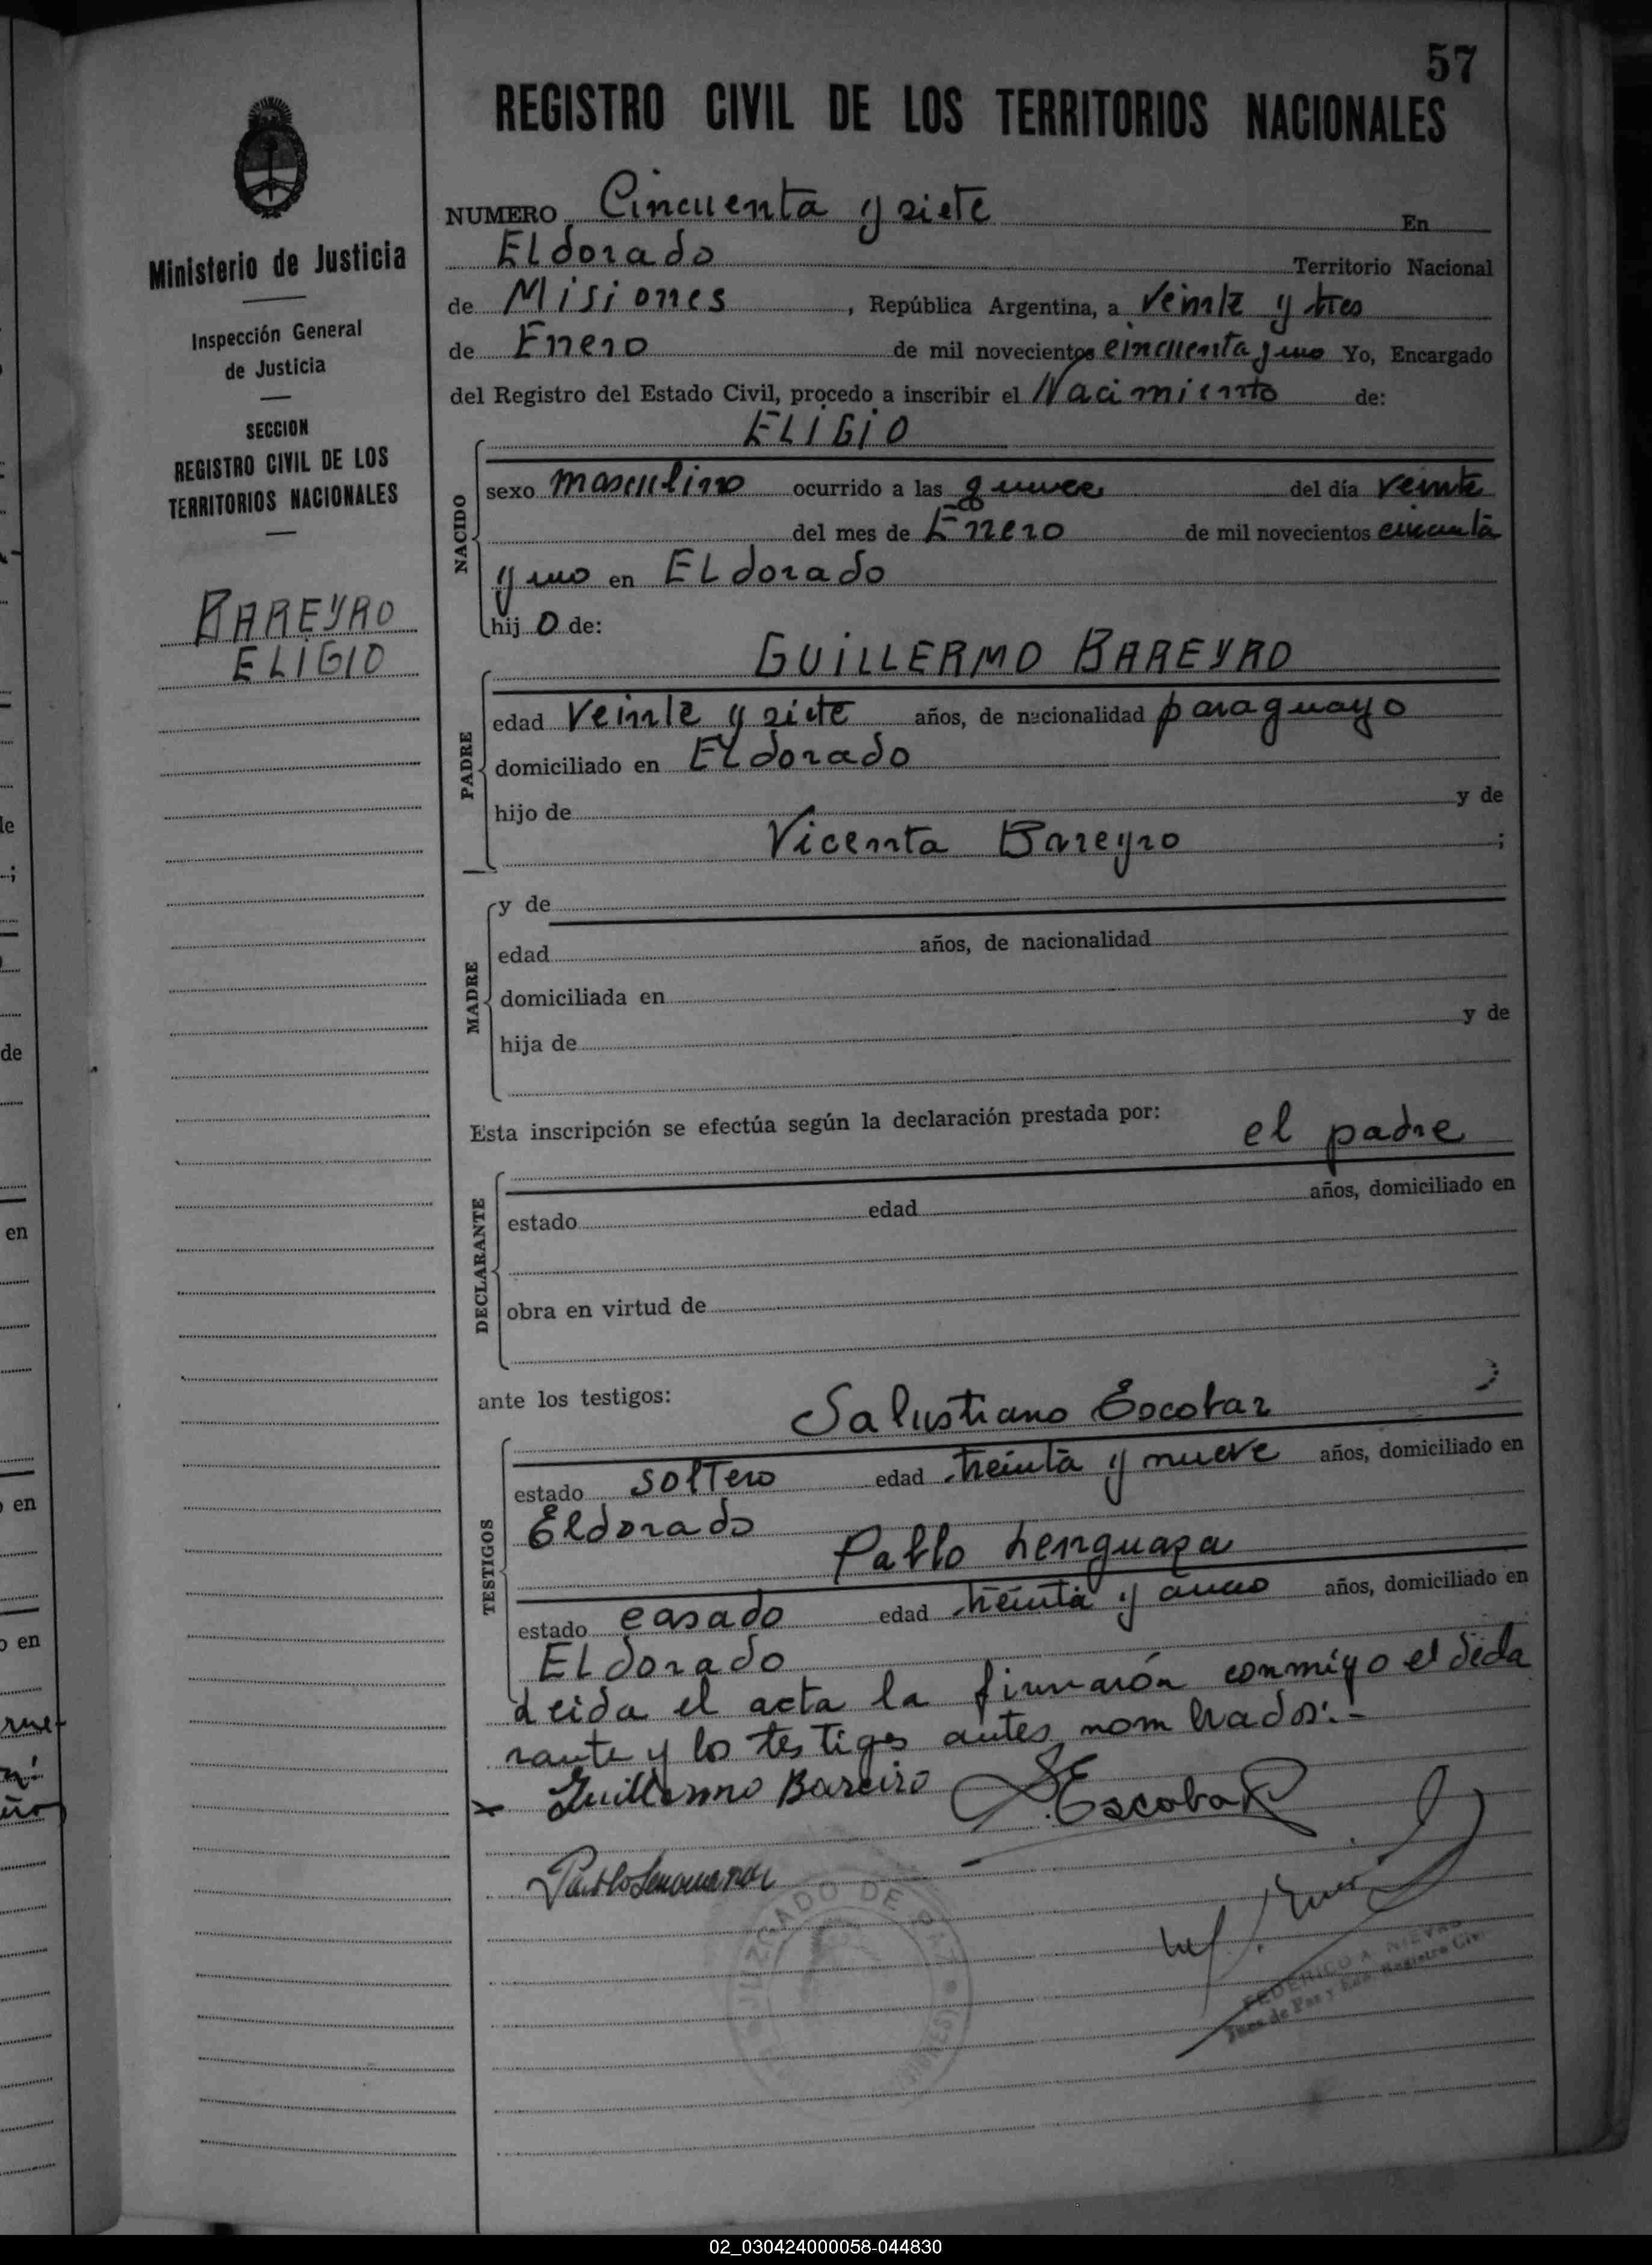 57
REGISTRO CIVIL DE LOS TERRITORIOS NACIONALES
Ministerio de Justicia
Inspección General
de Justicia
SECCION
REGISTRO CIVIL DE LOS
TERRITORIOS NACIONALES
BAREYRO
ELIGIO
NUMERO Cincuenta y siete En
ELdorado Territorio Nacional
de Misiones, República Argentina, a veinte y tres
de Enero de mil novecientos cincuenta y uno Yo, Encargado
del Registro del Estado Civil, procedo a inscribir el Nacimiento de:
ELIGIO
NACIDO
sexo masculino ocurrido a las quince del día veinte
del mes de Enero de mil novecientos cincuenta
y uno en ELdorado
hij o de:
GUILLERMO BAREYRO
PADRE
edad veinte y siete años, de nacionalidad paraguayo
domiciliado en ELdorado
hijo de y de
Vicenta Bareyro ;
MADRE
y de
edad años, de nacionalidad
domiciliada en
hija de y de
Esta inscripción se efectúa según la declaración prestada por:
el padre
DECLARANTE
estado edad años, domiciliado en
obra en virtud de
ante los testigos:
Salustiano Escobar
TESTIGOS
estado soltero edad treinta y nueve años, domiciliado en
Eldorado
Pablo
estado casado edad treinta y años, domiciliado en
ELdorado
Leida el acta la firmarón conmigo el decla
rante y los testigos antes nombrados.-
x Guillermo Bareiro Escobar
Pablo
JUZGADO DE PAZ
FEDERICO A.
Juez de Paz y Enc. Registro Civil
02_030424000058-044830